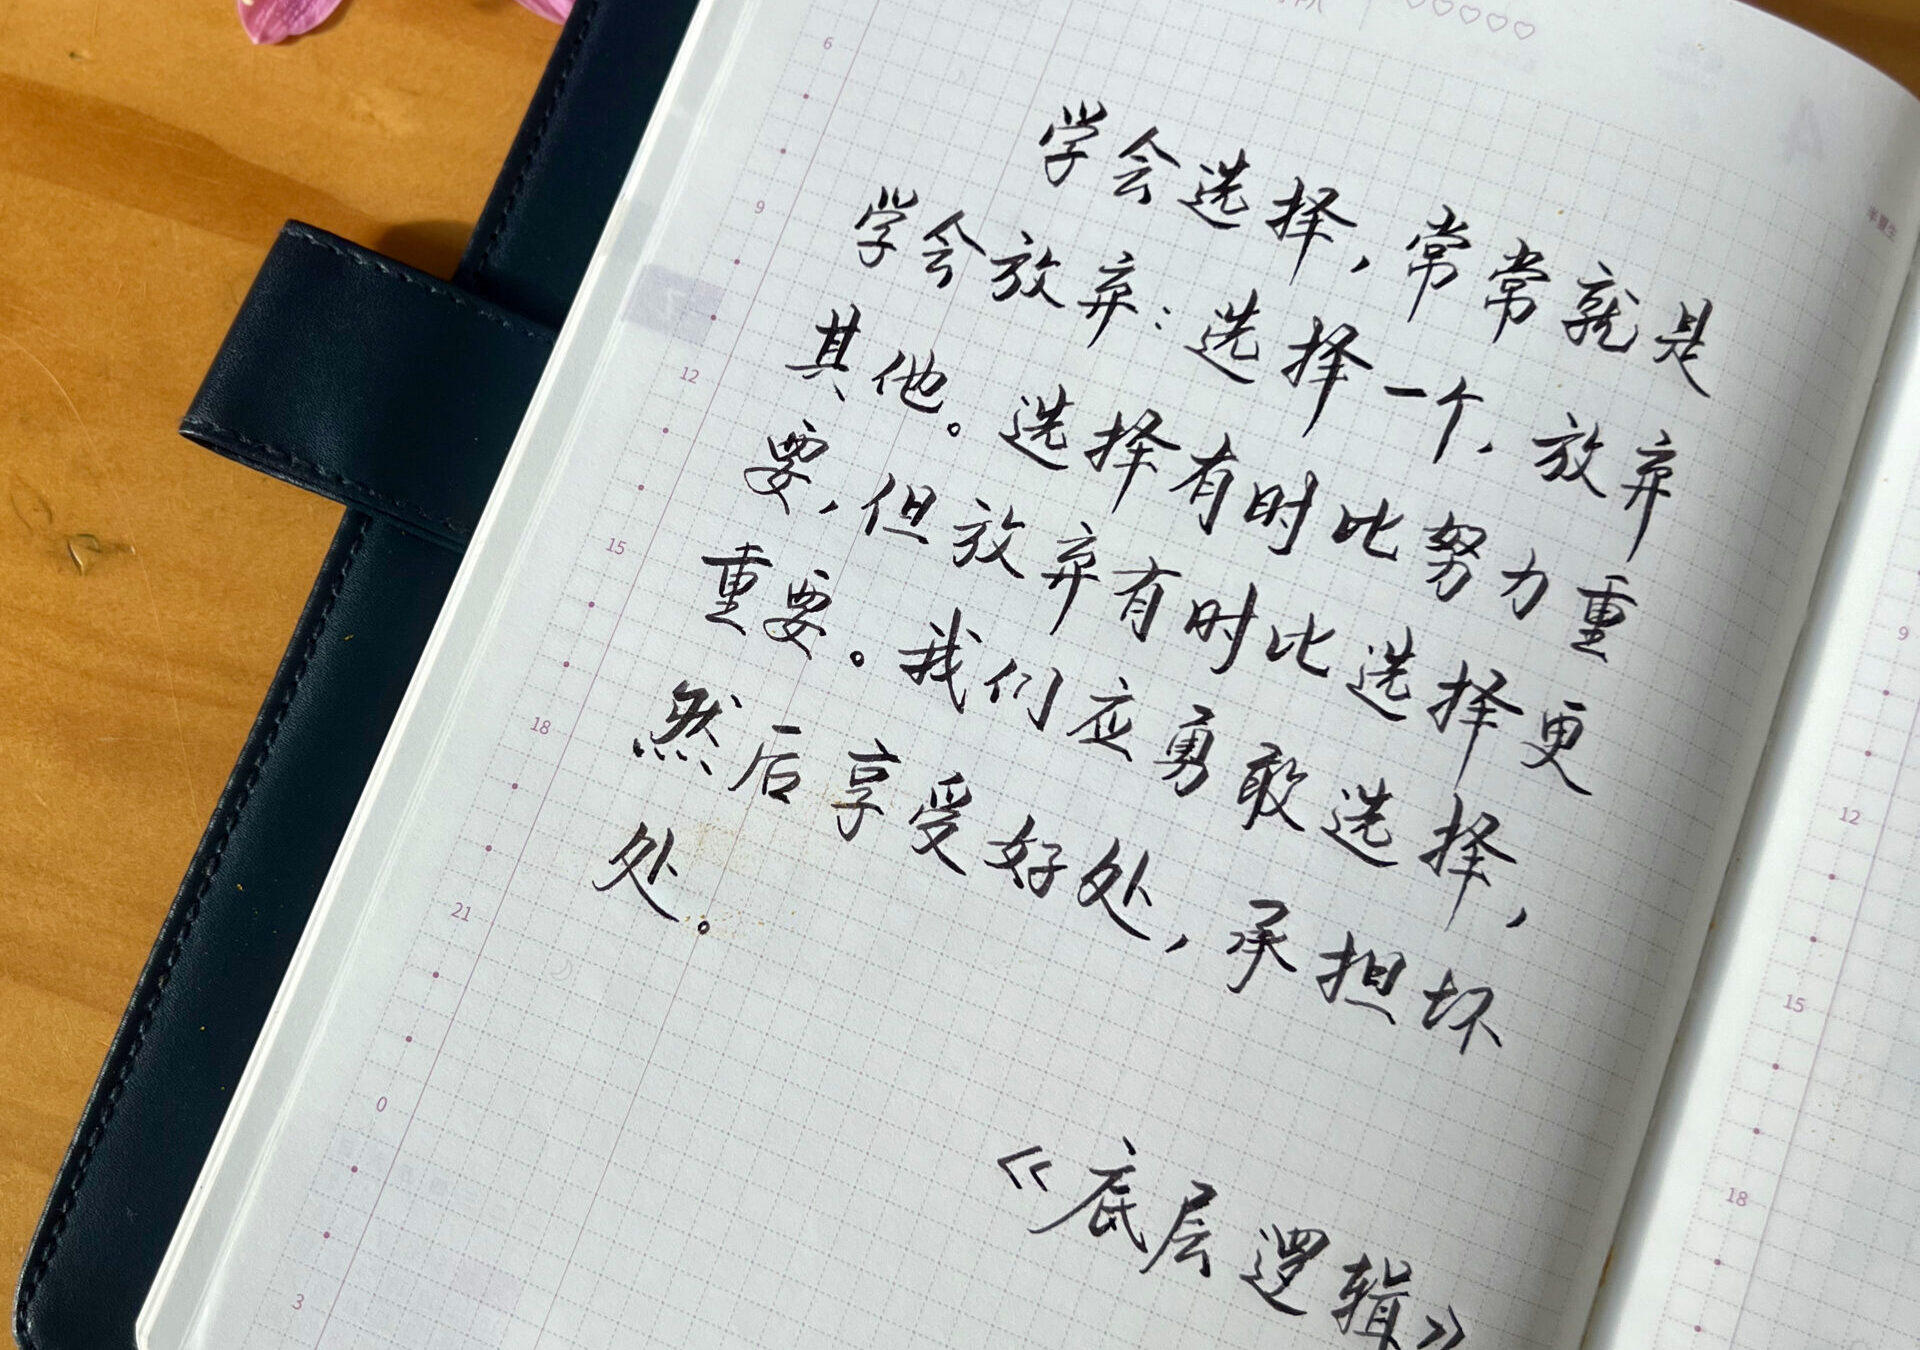 6
学会选择，常常就是
9
学会放弃：选择一个，放弃
其他。选择有时比努力重
12
要，但放弃有时比选择更
15
重要。我们应勇敢选择，
18
然后享受好处，承担坏
处。
21
0
3
《底层逻辑》
9
12
15
18